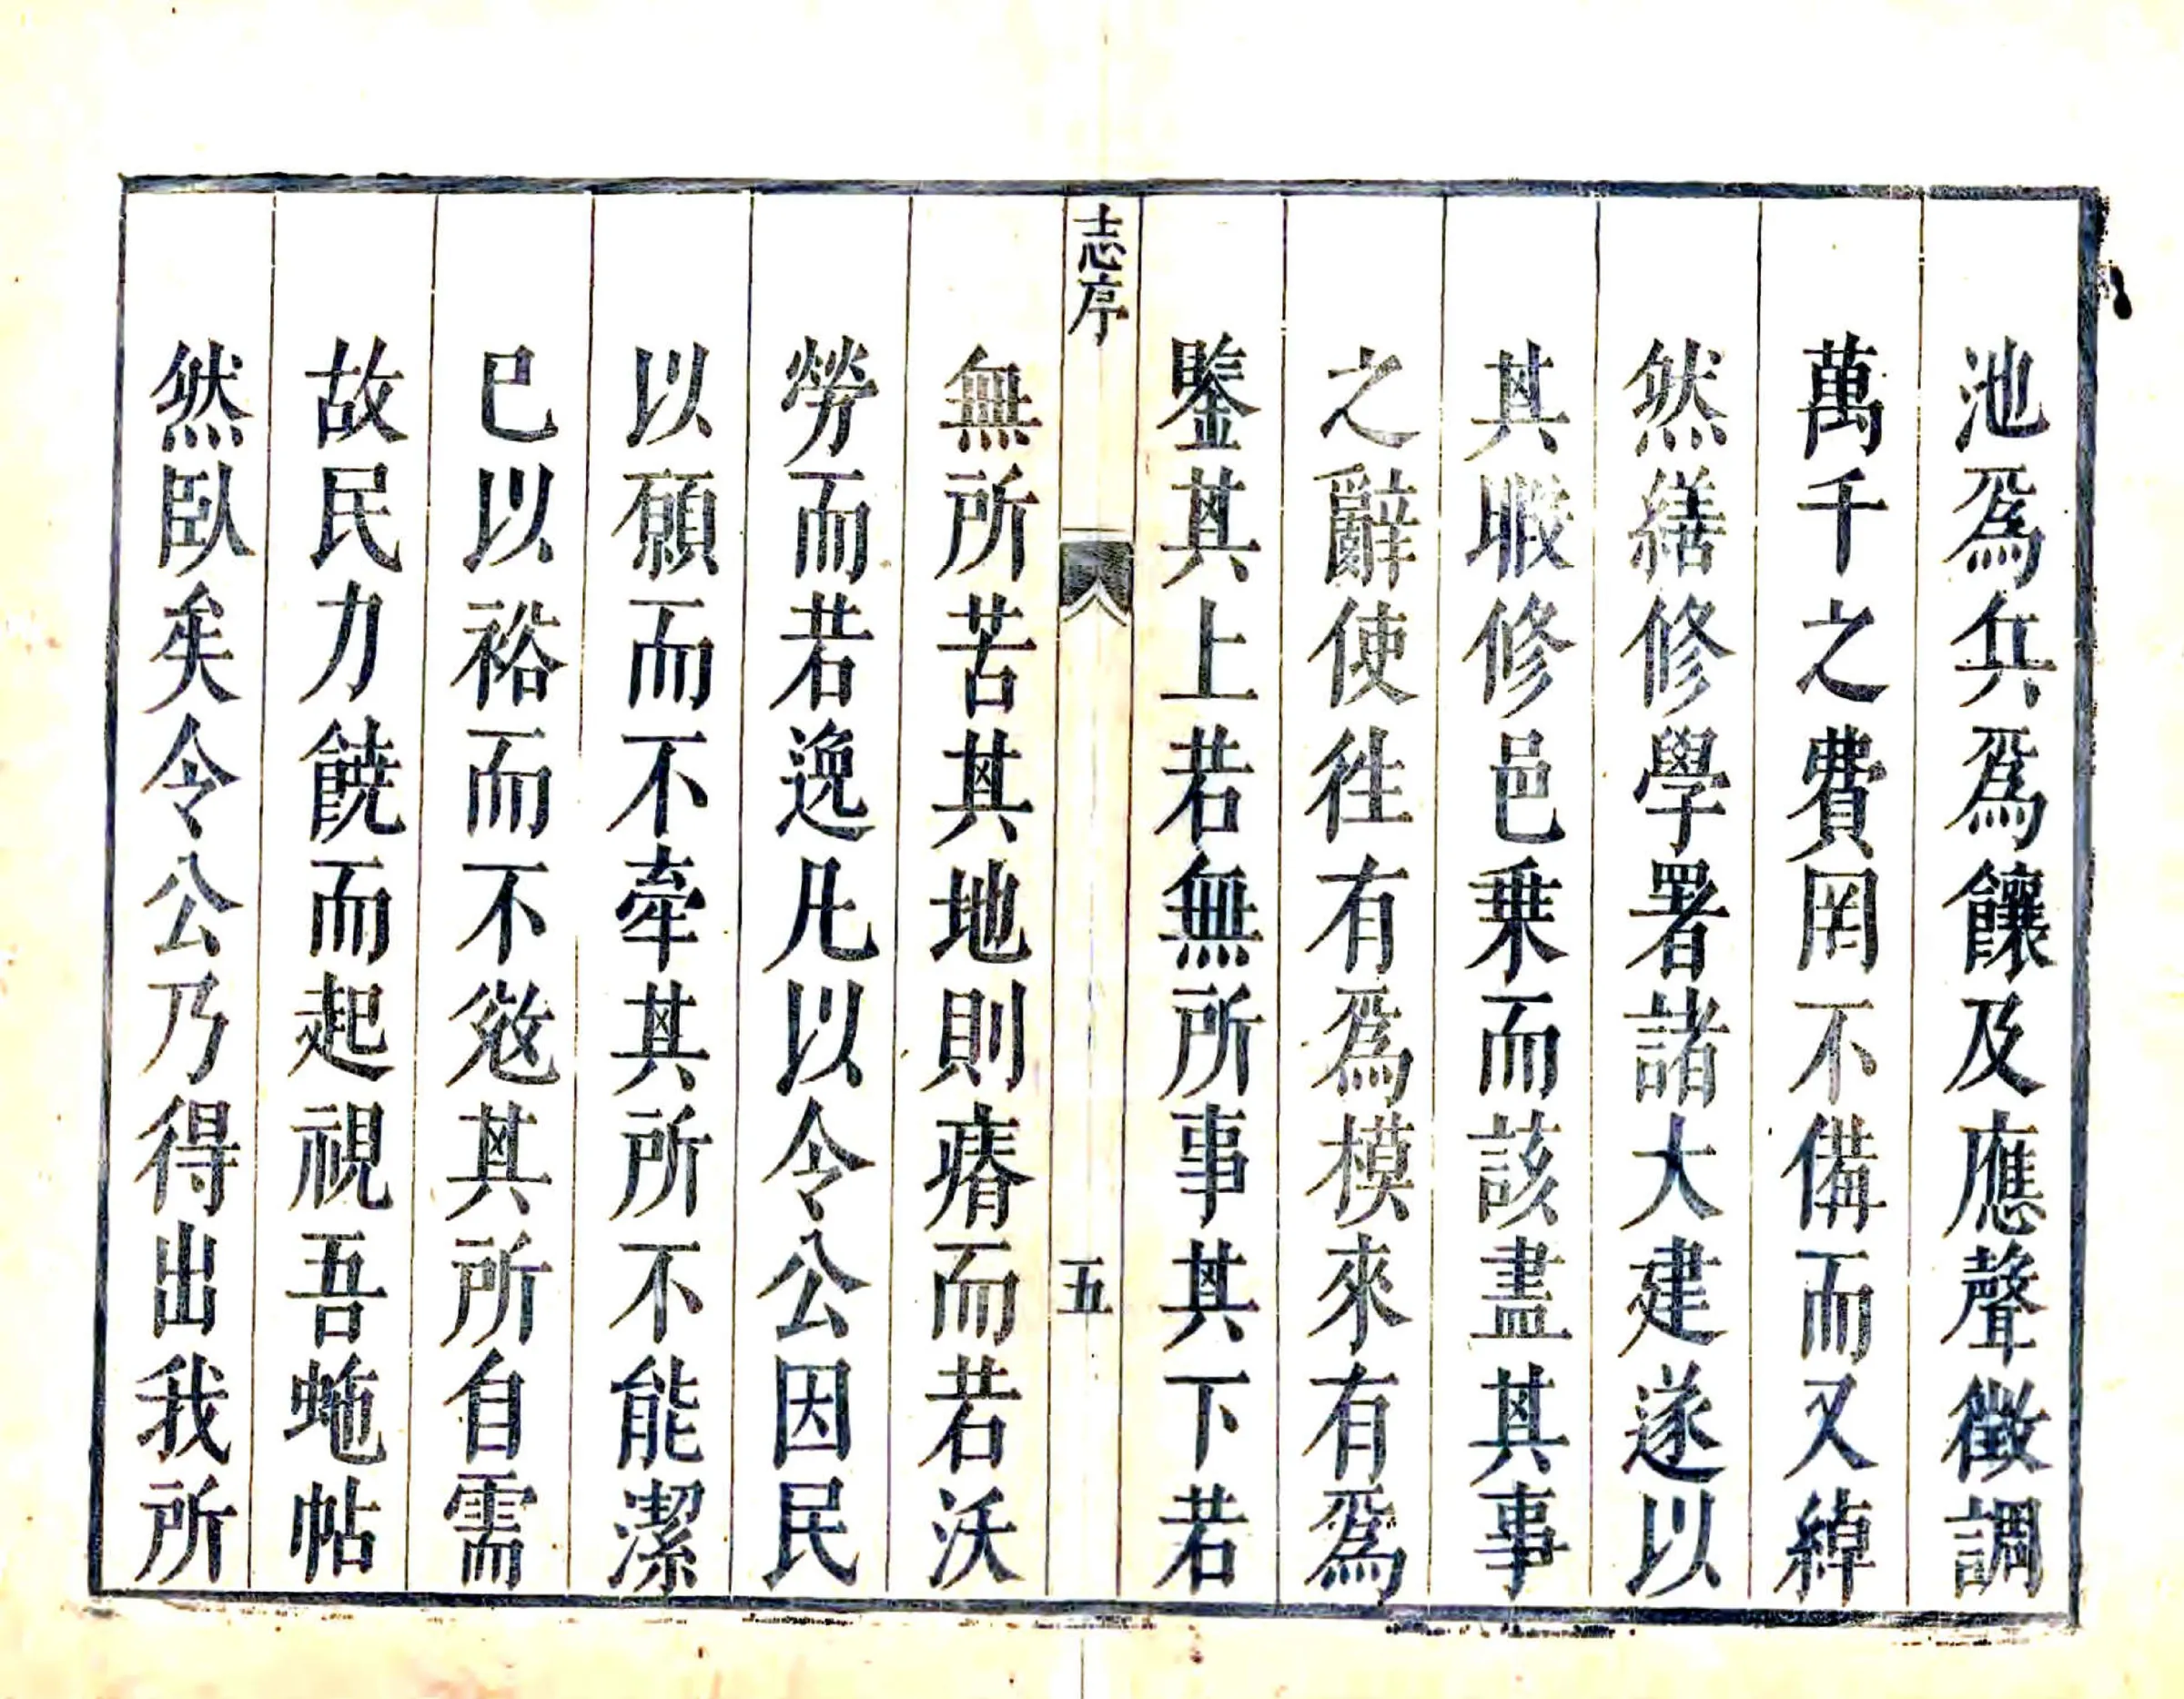 池爲兵爲饟及應聲徵調
萬千之費罔不備而又綽
然繕修學署諸大建遂以
其暇修邑乗而該盡其事
之辭使徃有爲模來有爲
鑒其上若無所事其下若
志序
五
無所苦其地則瘠而若沃
勞而若逸凡以令公因民
以願而不牽其所不能潔
已以裕而不愆其所自需
故民力饒而起視吾虵帖
然臥矣令公乃得出我所